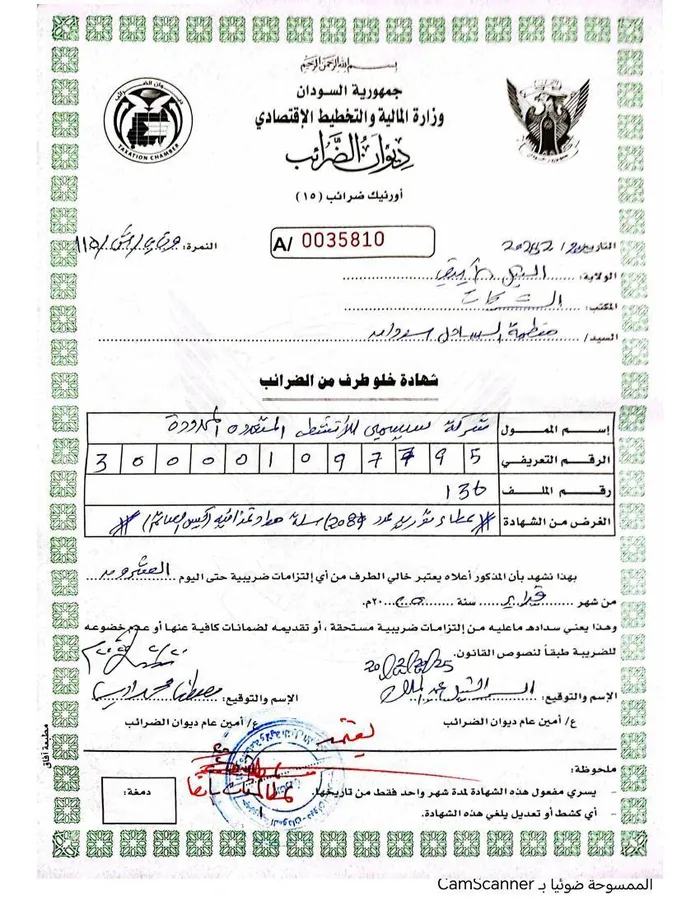 بسم الله الرحمن الرحيم
جمهورية السودان
وزارة المالية والتخطيط الإقتصادي
ديوان الضرائب
TAXATION CHAMBER
أورنيك ضرائب (١٥)
النمرة:
A/ 0035810
التاريخ
الولاية: النيل الأبيض
المكتب: الشركات
السيد/ منظمة
شهادة خلو طرف من الضرائب
إسم الممول شركة للأنشطة المتعددة المحدودة
الرقم التعريفي 3 0 0 0 0 0 1 0 9 7 7 9 5
رقم الملف 136
الغرض من الشهادة عطاء توريد عدد سلة
بهذا نشهد بأن المذكور أعلاه يعتبر خالي الطرف من أي إلتزامات ضريبية حتى اليوم العشرون
من شهر فبراير سنة ٢٠م.
وهذا يعني سداده ماعليه من إلتزامات ضريبية مستحقة ، أو تقديمه لضمانات كافية عنها أو عدم خضوعه
للضريبة طبقاً لنصوص القانون.
الإسم والتوقيع:
الإسم والتوقيع: مصطفى محمد
ع/ أمين عام ديوان الضرائب
ع/ أمين عام ديوان الضرائب
يعتمد
ملحوظة:
- يسري مفعول هذه الشهادة لمدة شهر واحد فقط من تاريخها.
- أي كشط أو تعديل يلغي هذه الشهادة.
دمغة:
مطبعة آفاق
الممسوحة ضوئيا بـ CamScanner